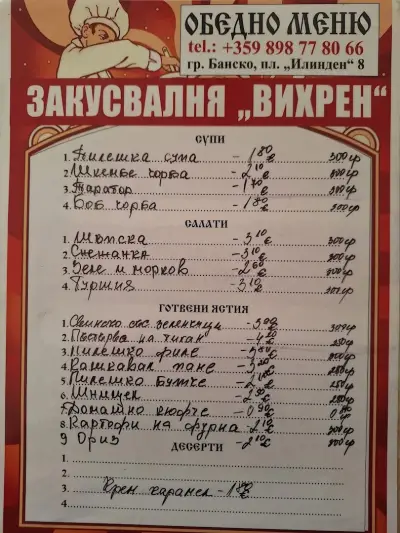 ОБЕДНО МЕНЮ
tel.: +359 898 77 80 66
гр. Банско, пл. „Илинден“ 8
ЗАКУСВАЛНЯ „ВИХРЕН“
СУПИ
1. Пилешка супа - 1 80 € 300гр
2. Шкембе чорба - 2 10 € 300гр
3. Таратор - 1 70 € 300гр
4. Боб чорба - 1 80 € 300гр
САЛАТИ
1. Шопска - 3 10 € 300гр
2. Снежанка - 3 10 € 300гр
3. Зеле и морков - 2 60 € 300гр
4. Туршия - 3 10 300гр
ГОТВЕНИ ЯСТИЯ
1. Свинско със зеленчици 300гр
2. Пъстърва на тиган
3. Пилешко филе
4. Кашкавал пане
5. Пилешко бутче
6. Шницел
7. Домашно кюфче - 0 90 €
8. Картофи на фурна - 2 10 € 300гр
9 Ориз - 2 10 € 300гр
ДЕСЕРТИ
1.
2.
3. Крем карамел - 1 80 €
4.